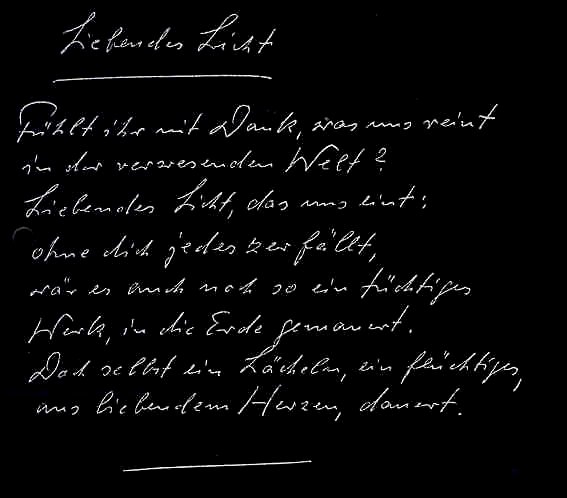 Liebendes Licht
Fühlt ihr mit Dank, was uns reint
in der verwesenden Welt?
Liebendes Licht, das uns eint:
ohne dich jedes zerfällt,
wär es auch noch so ein tüchtiges
Werk, in die Erde gemauert.
Doch selbst ein Lächeln, ein flüchtiges,
aus liebendem Herzen, dauert.